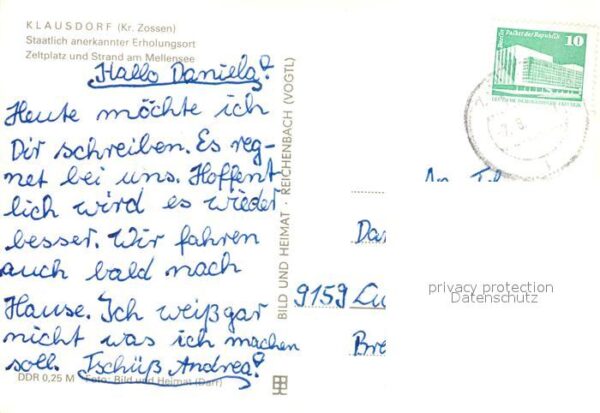 KLAUSDORF (Kr. Zossen)
Staatlich anerkannter Erholungsort
Zeltplatz und Strand am Mellensee
Hallo Daniela!
Heute möchte ich
Dir schreiben. Es reg-
net bei uns. Hoffent
lich wird es wieder
besser. Wir fahren
auch bald nach
Hause. Ich weiß gar
nicht was ich machen
soll. Tschüß Andrea!
DDR 0,25 M Foto: Bild und Heimat (Darr)
BILD UND HEIMAT · REICHENBACH (VOGTL)
Berlin, Palast der Republik
10
DEUTSCHE DEMOKRATISCHE REPUBLIK
Da
9159 Lu
Bre
privacy protection
Datenschutz